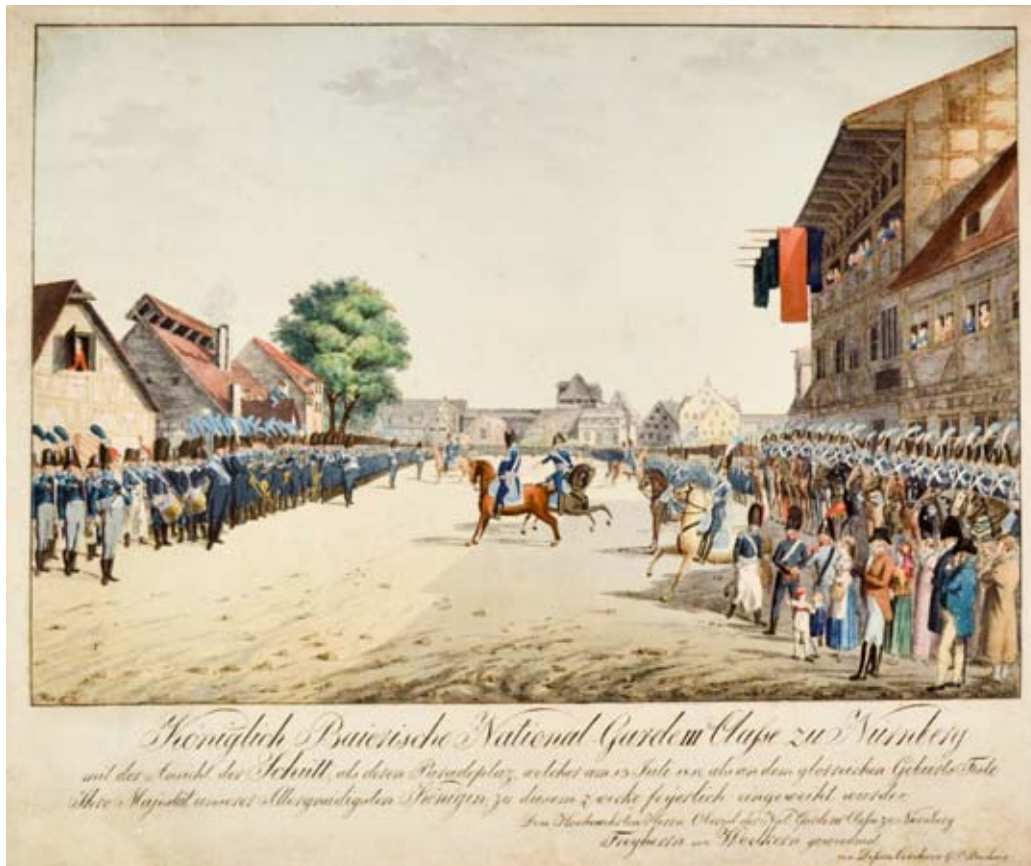 Königlich Baierische National Garde III Classe zu Nürnberg
mit der Ansicht der Schütt, als deren Paradeplaz, welcher am 13 Julÿ als an dem glorreichen Geburts Feste
Ihro Majestät unserer Allergnädigsten Königin, zu diesem Zwecke feyerlich eingeweiht wurde.
Dem Herrn Oberst der Nat. Garde III Classe zu Nürnberg
Freyherrn von Woelkern gewidmet
von